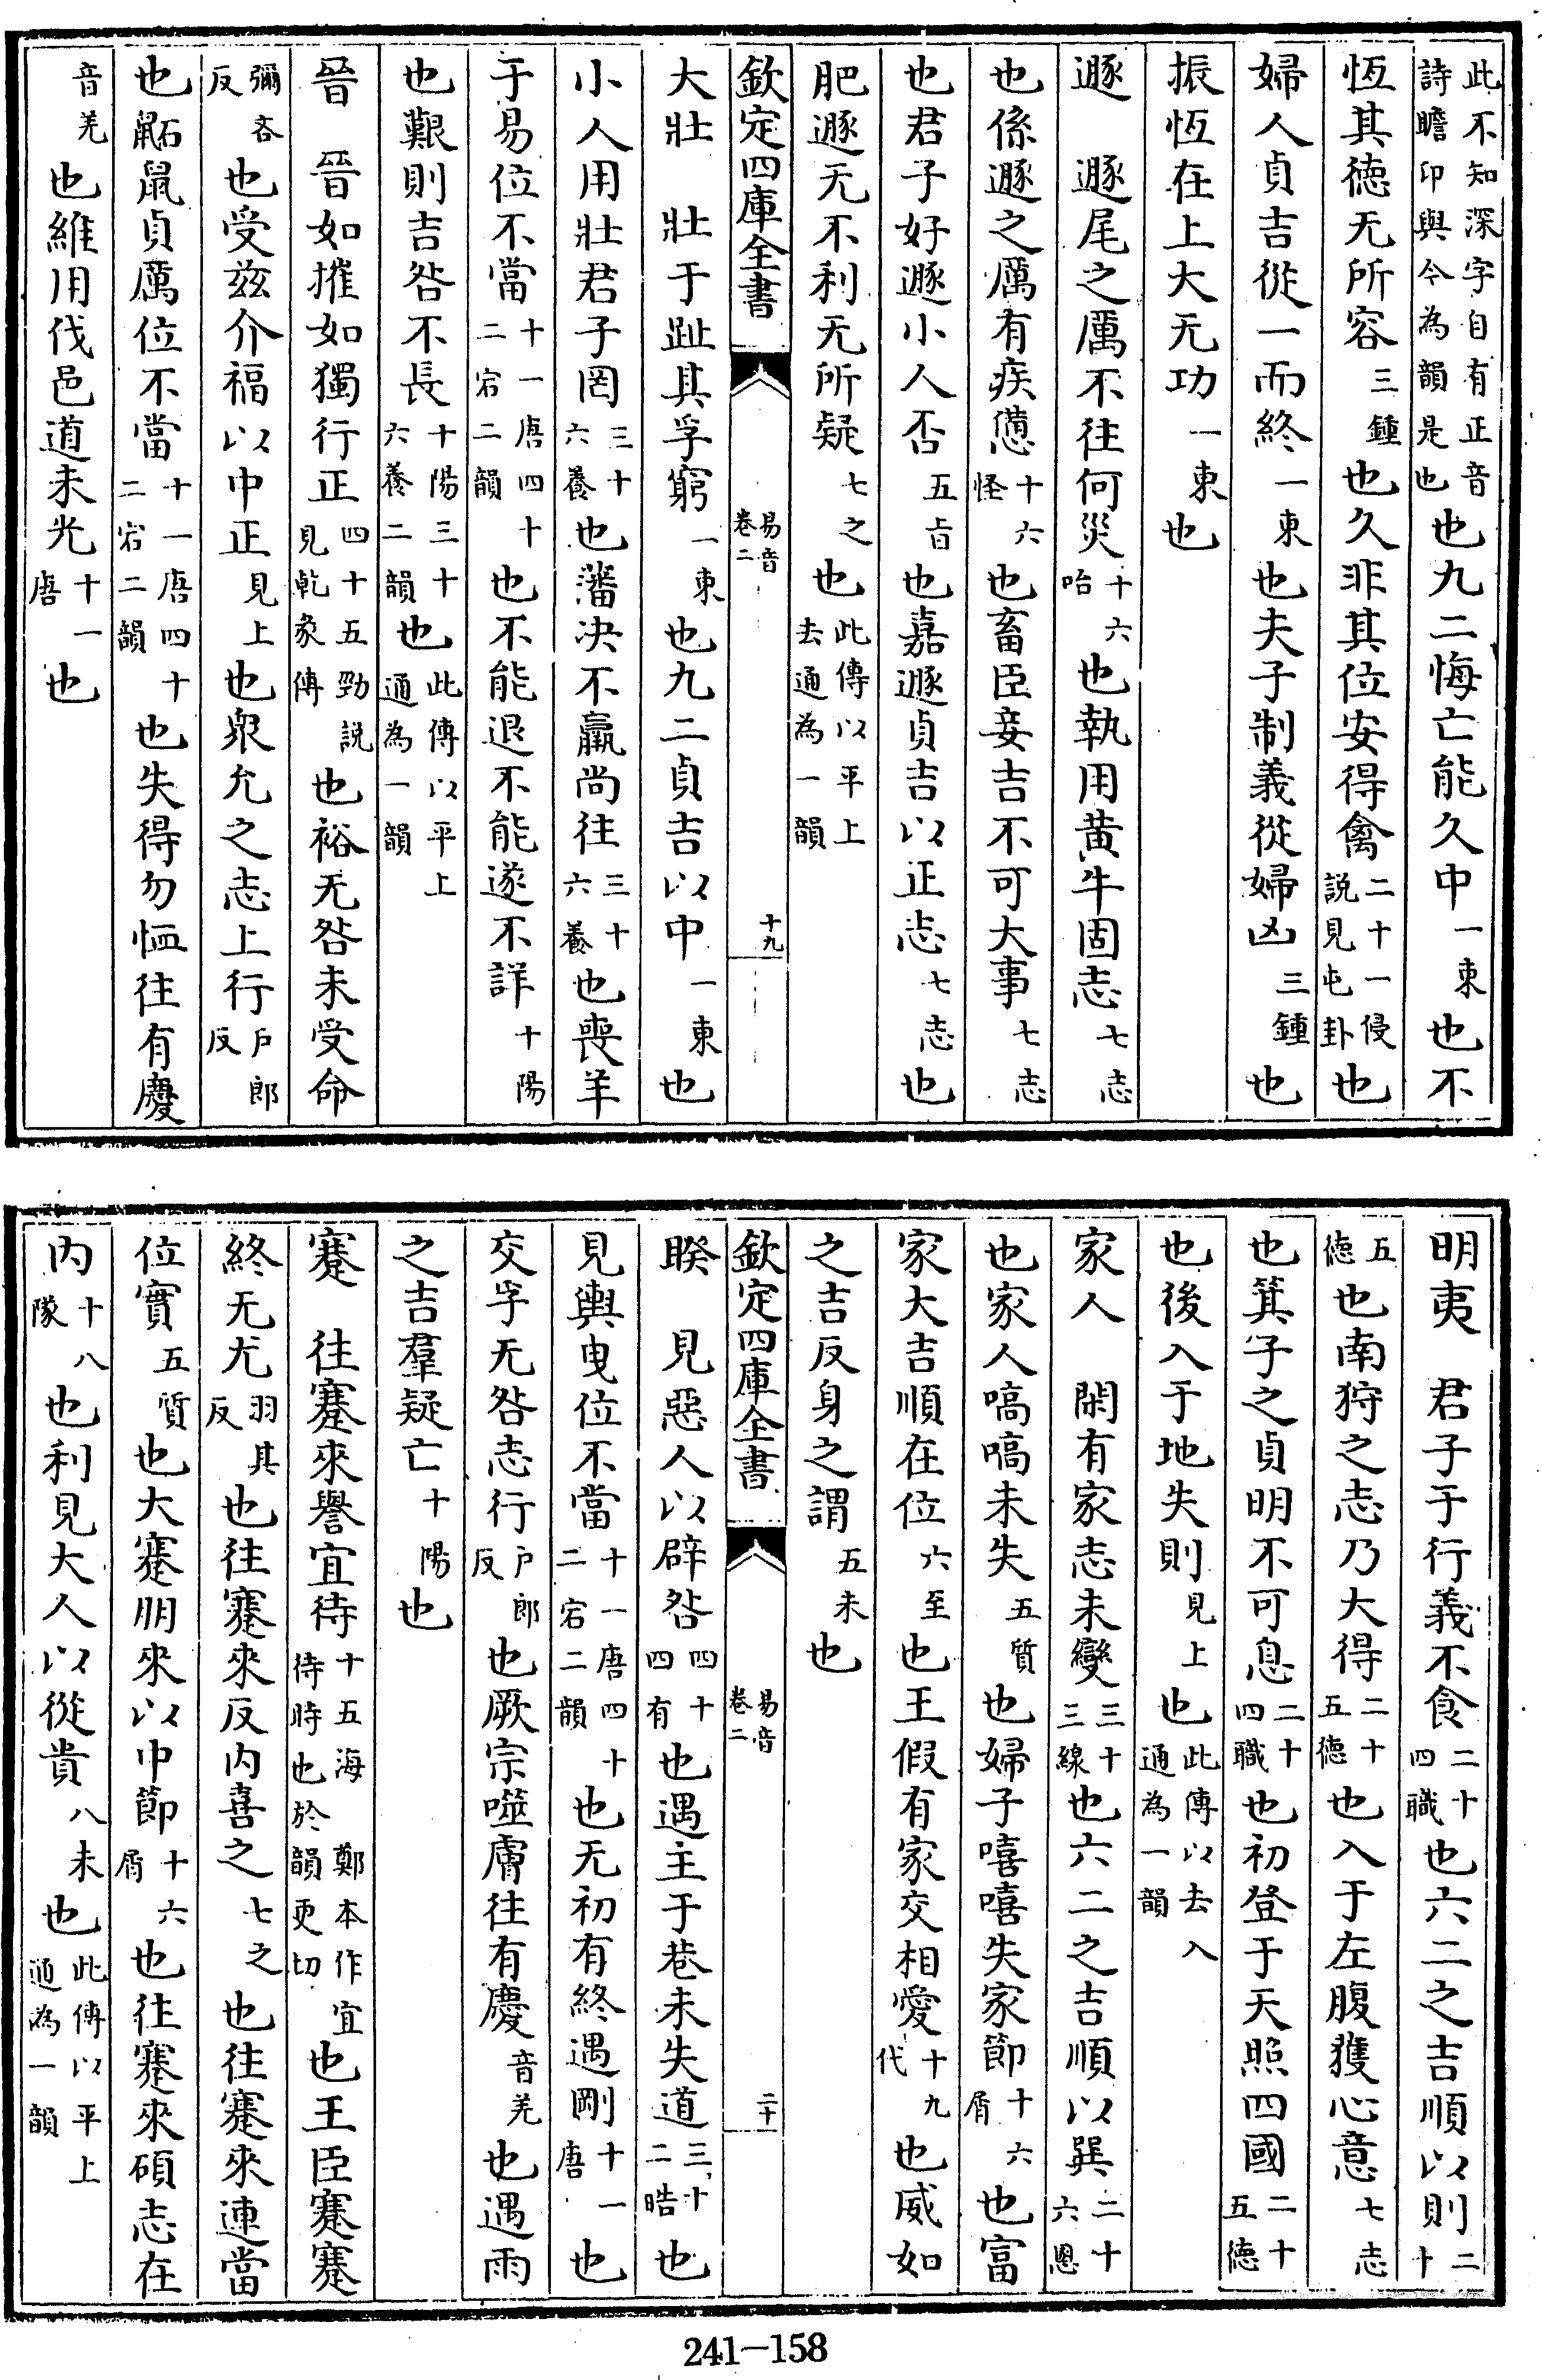 此不知深字自有正音詩瞻卬與今為韻是也也九二悔亡能久中一東也不
恆其徳无所容三鍾也久非其位安得禽二十一侵說見屯卦也
婦人貞吉從一而終一東也夫子制義從婦凶三鍾也
振恆在上大无功一東也
遯　遯尾之厲不往何災十六咍也執用黄牛固志七志
也係遯之厲有疾憊十六怪也畜臣妾吉不可大事七志
也君子好遯小人否五旨也嘉遯貞吉以正志七志也
肥遯无不利无所疑七之也此傳以平上去通為一韻
欽定四庫全書　易音卷二　十九
大壯　壯于趾其孚窮一東也九二貞吉以中一東也
小人用壯君子罔三十六養也藩决不羸尚往三十六養也喪羊
于易位不當十一唐四十二宕二韻也不能退不能遂不詳十陽
也艱則吉咎不長十陽三十六養二韻也此傳以平上通為一韻
晉　晉如摧如獨行正四十五勁說見乾彖傳也裕无咎未受命
彌吝反也受兹介福以中正見上也衆允之志上行户郎反
也鼫鼠貞厲位不當十一唐四十二宕二韻也失得勿恤往有慶
音羌也維用伐邑道未光十一唐也
明夷　君子于行義不食二十四職也六二之吉順以則二十
五德也南狩之志乃大得二十五德也入于左腹獲心意七志
也箕子之貞明不可息二十四職也初登于天照四國二十五德
也後入于地失則見上也此傳以去入通為一韻
家人　閑有家志未變三十三線也六二之吉順以巽二十六慁
也家人嗃嗃未失五質也婦子嘻嘻失家節十六屑也富
家大吉順在位六至也王假有家交相愛十九代也威如
之吉反身之謂五未也
欽定四庫全書　易音卷二　二十
睽　見惡人以辟咎四十四有也遇主于巷未失道三十二晧也
見輿曳位不當十一唐四十二宕二韻也无初有終遇剛十一唐也
交孚无咎志行户郎反也厥宗噬膚往有慶音羌也遇雨
之吉羣疑亡十陽也
蹇　往蹇來譽宜待十五海鄭本作宜待時也於韻更切也王臣蹇蹇
終无尤羽其反也往蹇來反内喜之七之也往蹇來連當
位實五質也大蹇朋來以中節十六屑也往蹇來碩志在
内十八隊也利見大人以從貴八未也此傳以平上通為一韻
241—158